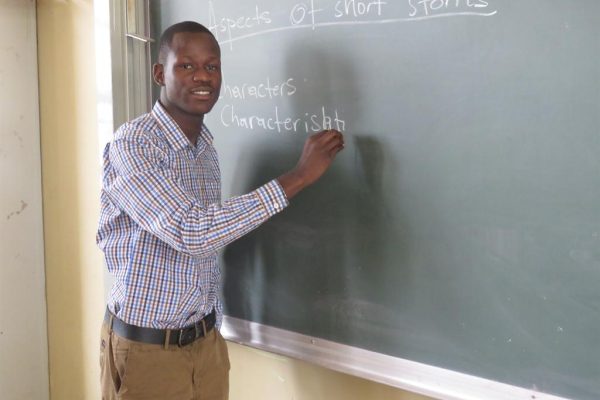 Aspects Of short stories
Characters
Characterisati